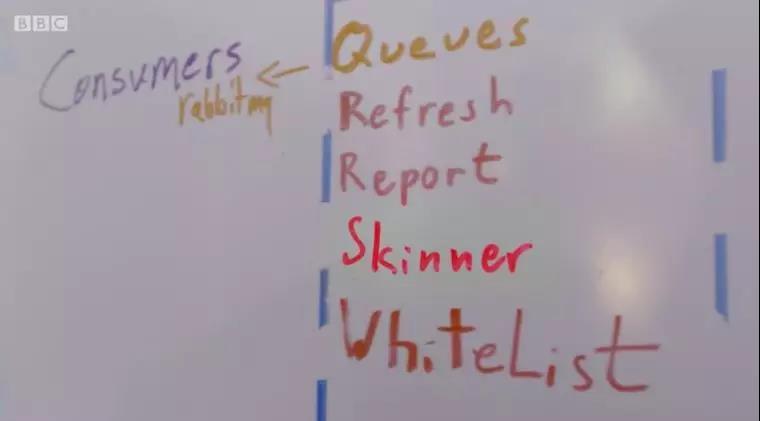 BBC
Queues
Consumers ←
rabbitmq
Refresh
Report
Skinner
WhiteList